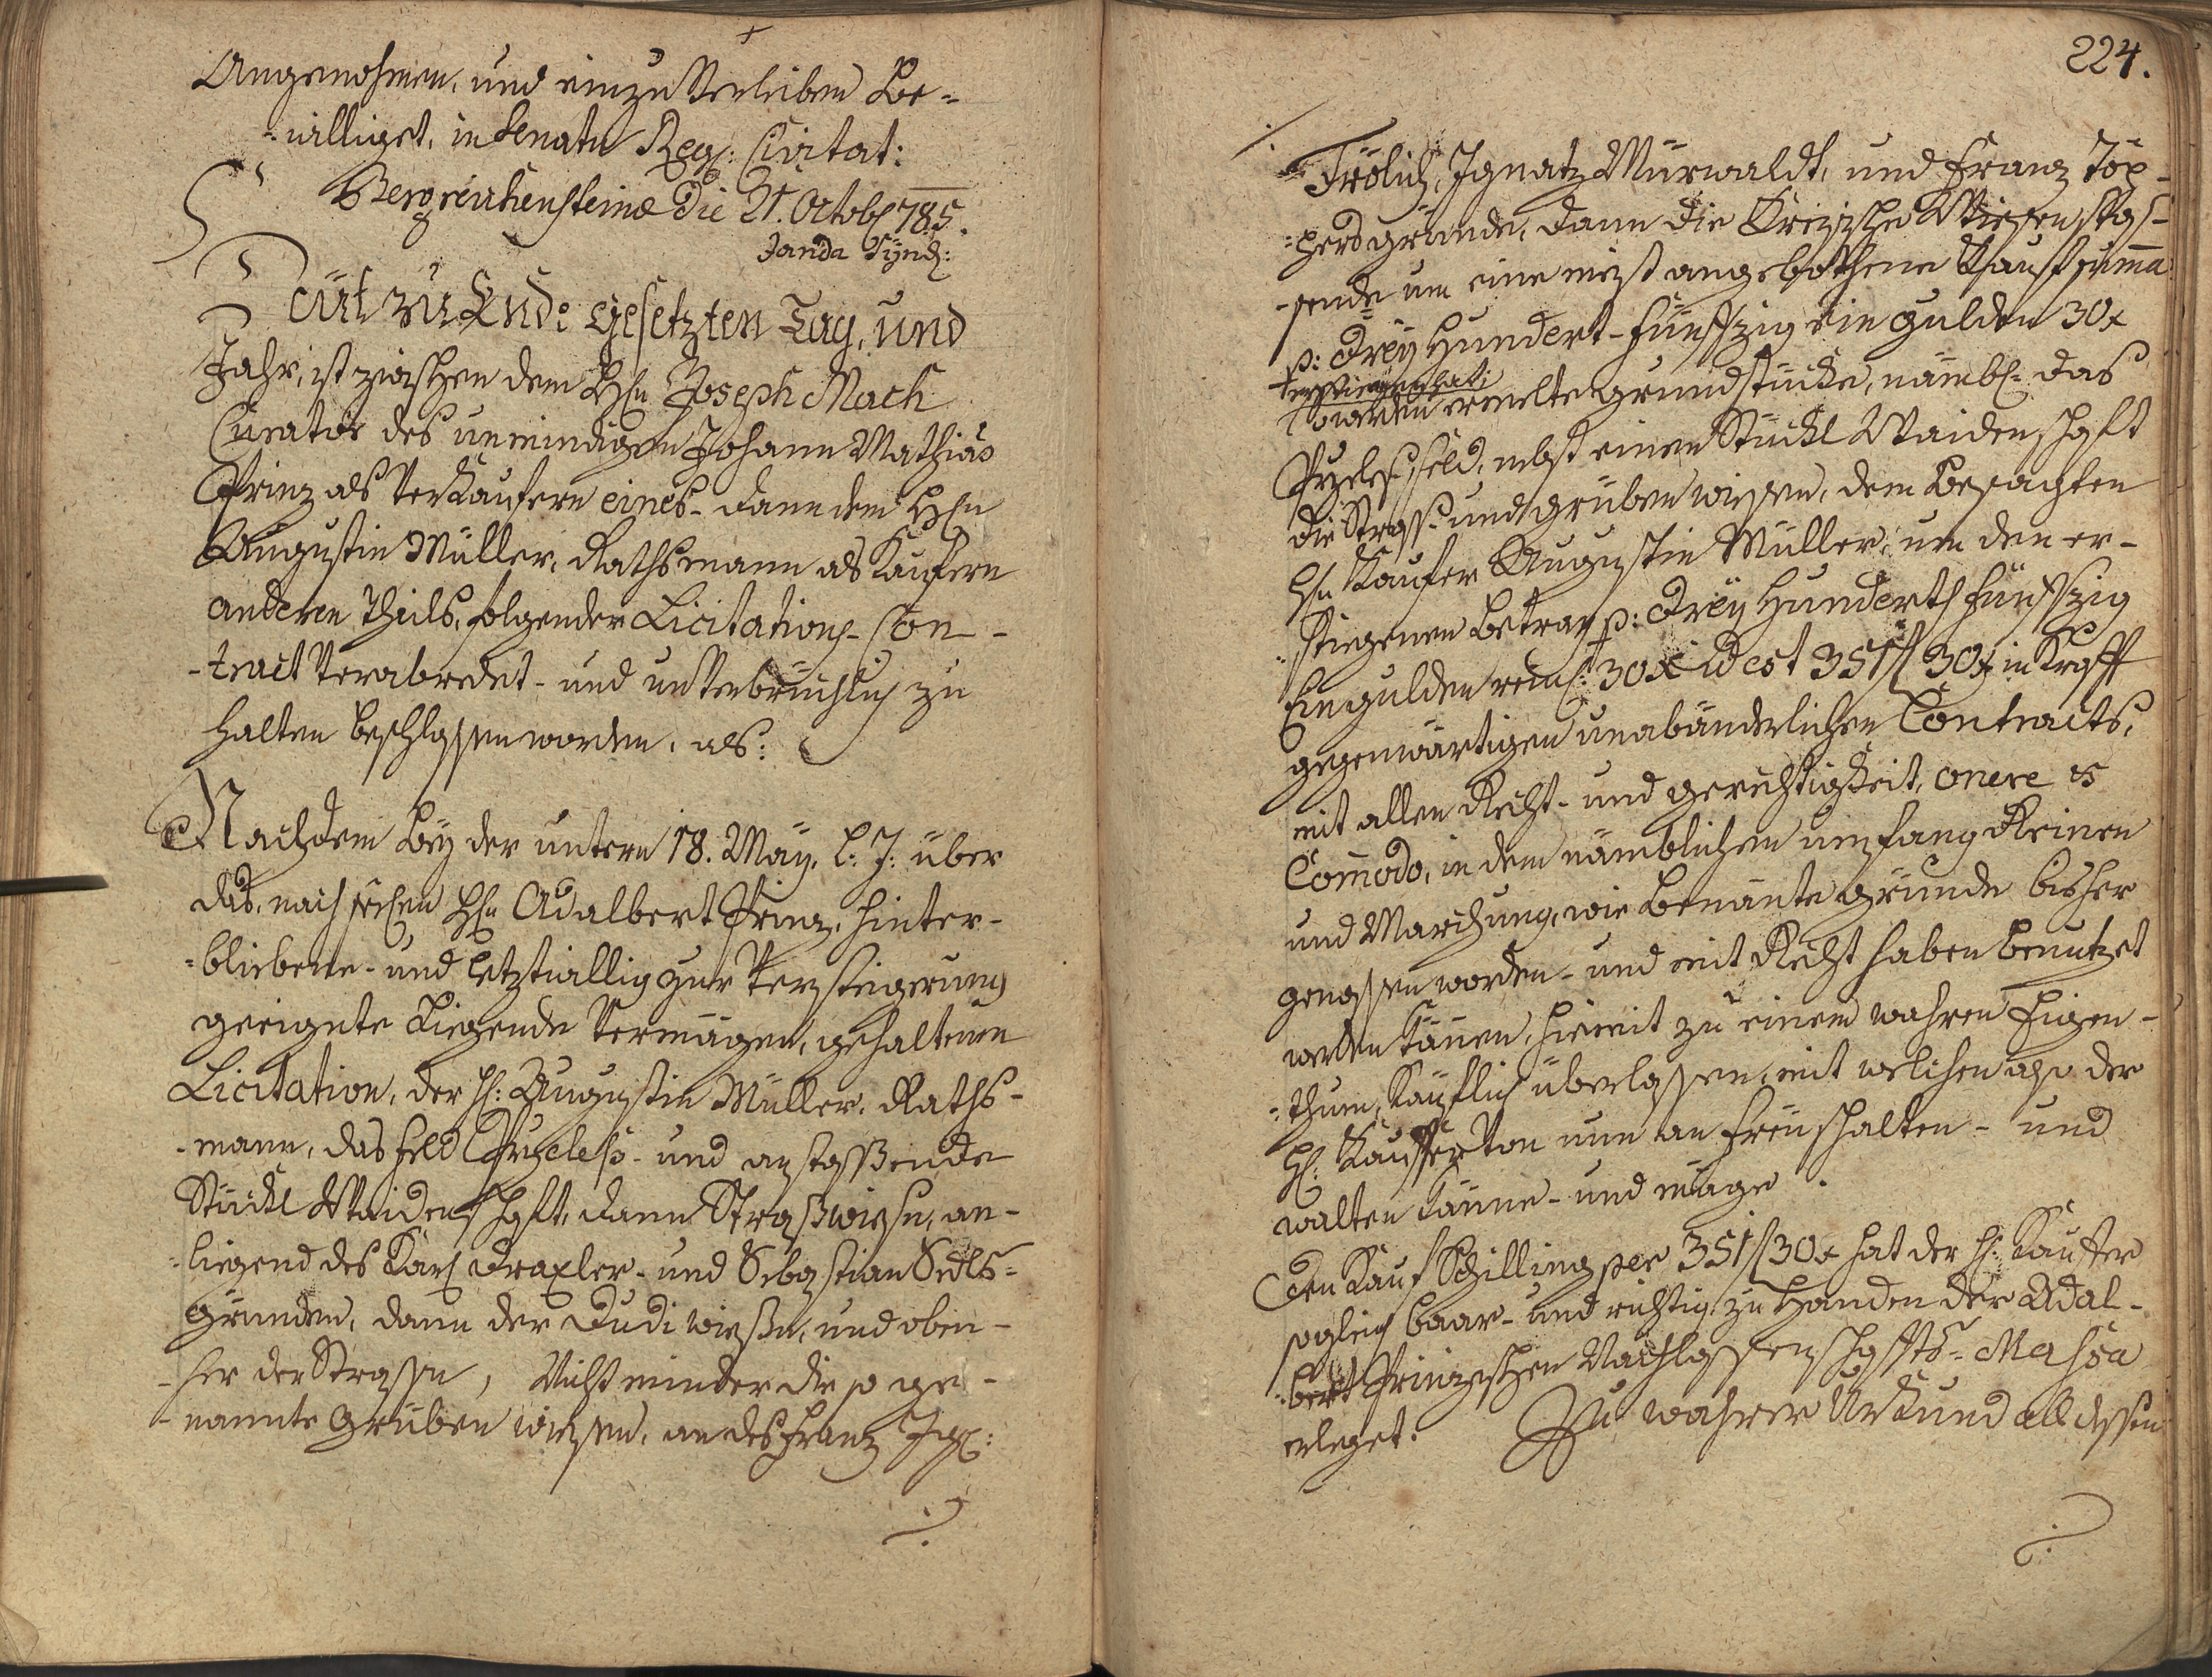 Angenohmen, und einzuverleiben be=
=williget, in Senatu Reg: Civitat:
Bergreichensteinæ die 21. Octob 785.
Janda Synd:
Heut zu Ende gesetzten Tag, und
Jahr, ist zwischen dem Hn Joseph Mach
Curator des unmindigen Johann Mathias
Prinz als Verkäufern eines- dann dem Hn
Augustin Müller, Rathsmann als Kaufern
anderen Theils, folgender Licitations-Con-
-tract verabredet- und unverbrüchlich zu
halten beschlossen worden, als:
Nachdem bey der untern 18. May. l: J: über
das, nach Hn Adalbert Prinz, hinter-
=bliebene- und letztwillig zur Versteigerung
geeignete Liegende Vermögen, gehaltenen
Licitation, der H: Augustin Müller, Raths-
-mann, das Feld Przeless- und anstossende
Stückl Waidenschaft, dann Strasswiesn, an-
=liegend des Karl Draxler- und Sebastian Sedls=
gründen, dann der Dudi wiesn, und oben-
-her der Strassen, Nicht minder die so ge-
-nannte Gruben wiesen, an des Franz Ign:
224.
Frölich, Ignatz Murwaldt, und Franz Töp-
=pers gründe, dann die Wiesen stos-
-sende um eine meist angebothene Kaufsuma
p: Drey Hundert-Fünfzig ein gulden 30x
erstiegen hat;
werden ermelte grundstücke, nämbl: das
Przeless feld, nebst einen Stückl Waidenschaft
die Strass- und gruben wiesen, dem besagten
Hn Kaufer Augustin Müller, um den er-
=stiegenen betrag p: Drey Hundert Fünfzig
Ein gulden rein: 30x id est 351f 30x in Krafft
gegenwärtigen unabänderlichen Contracts,
mit allen Recht- und gerechtigkeit, onere et
Comodo, in dem nämblichen umfang Reinen
und Marchung, wie benante gründe bisher
genossen worden- und mit Recht haben benutzet
werden können, hiemit zu einem wahren Eigen-
=thum, käuflich überlassen, mit welchen also der
H: Kauffer von nun an frey schalten- und
walten könne- und möge.
Den Kauf Schilling per 351f 30x hat der H: Kauffer
sogleich baar- und richtig zu Handen der Adal-
=bert Prinzischen Nachlassenschaffts-Massa
erleget. Zu wahrer Urkund all dessen